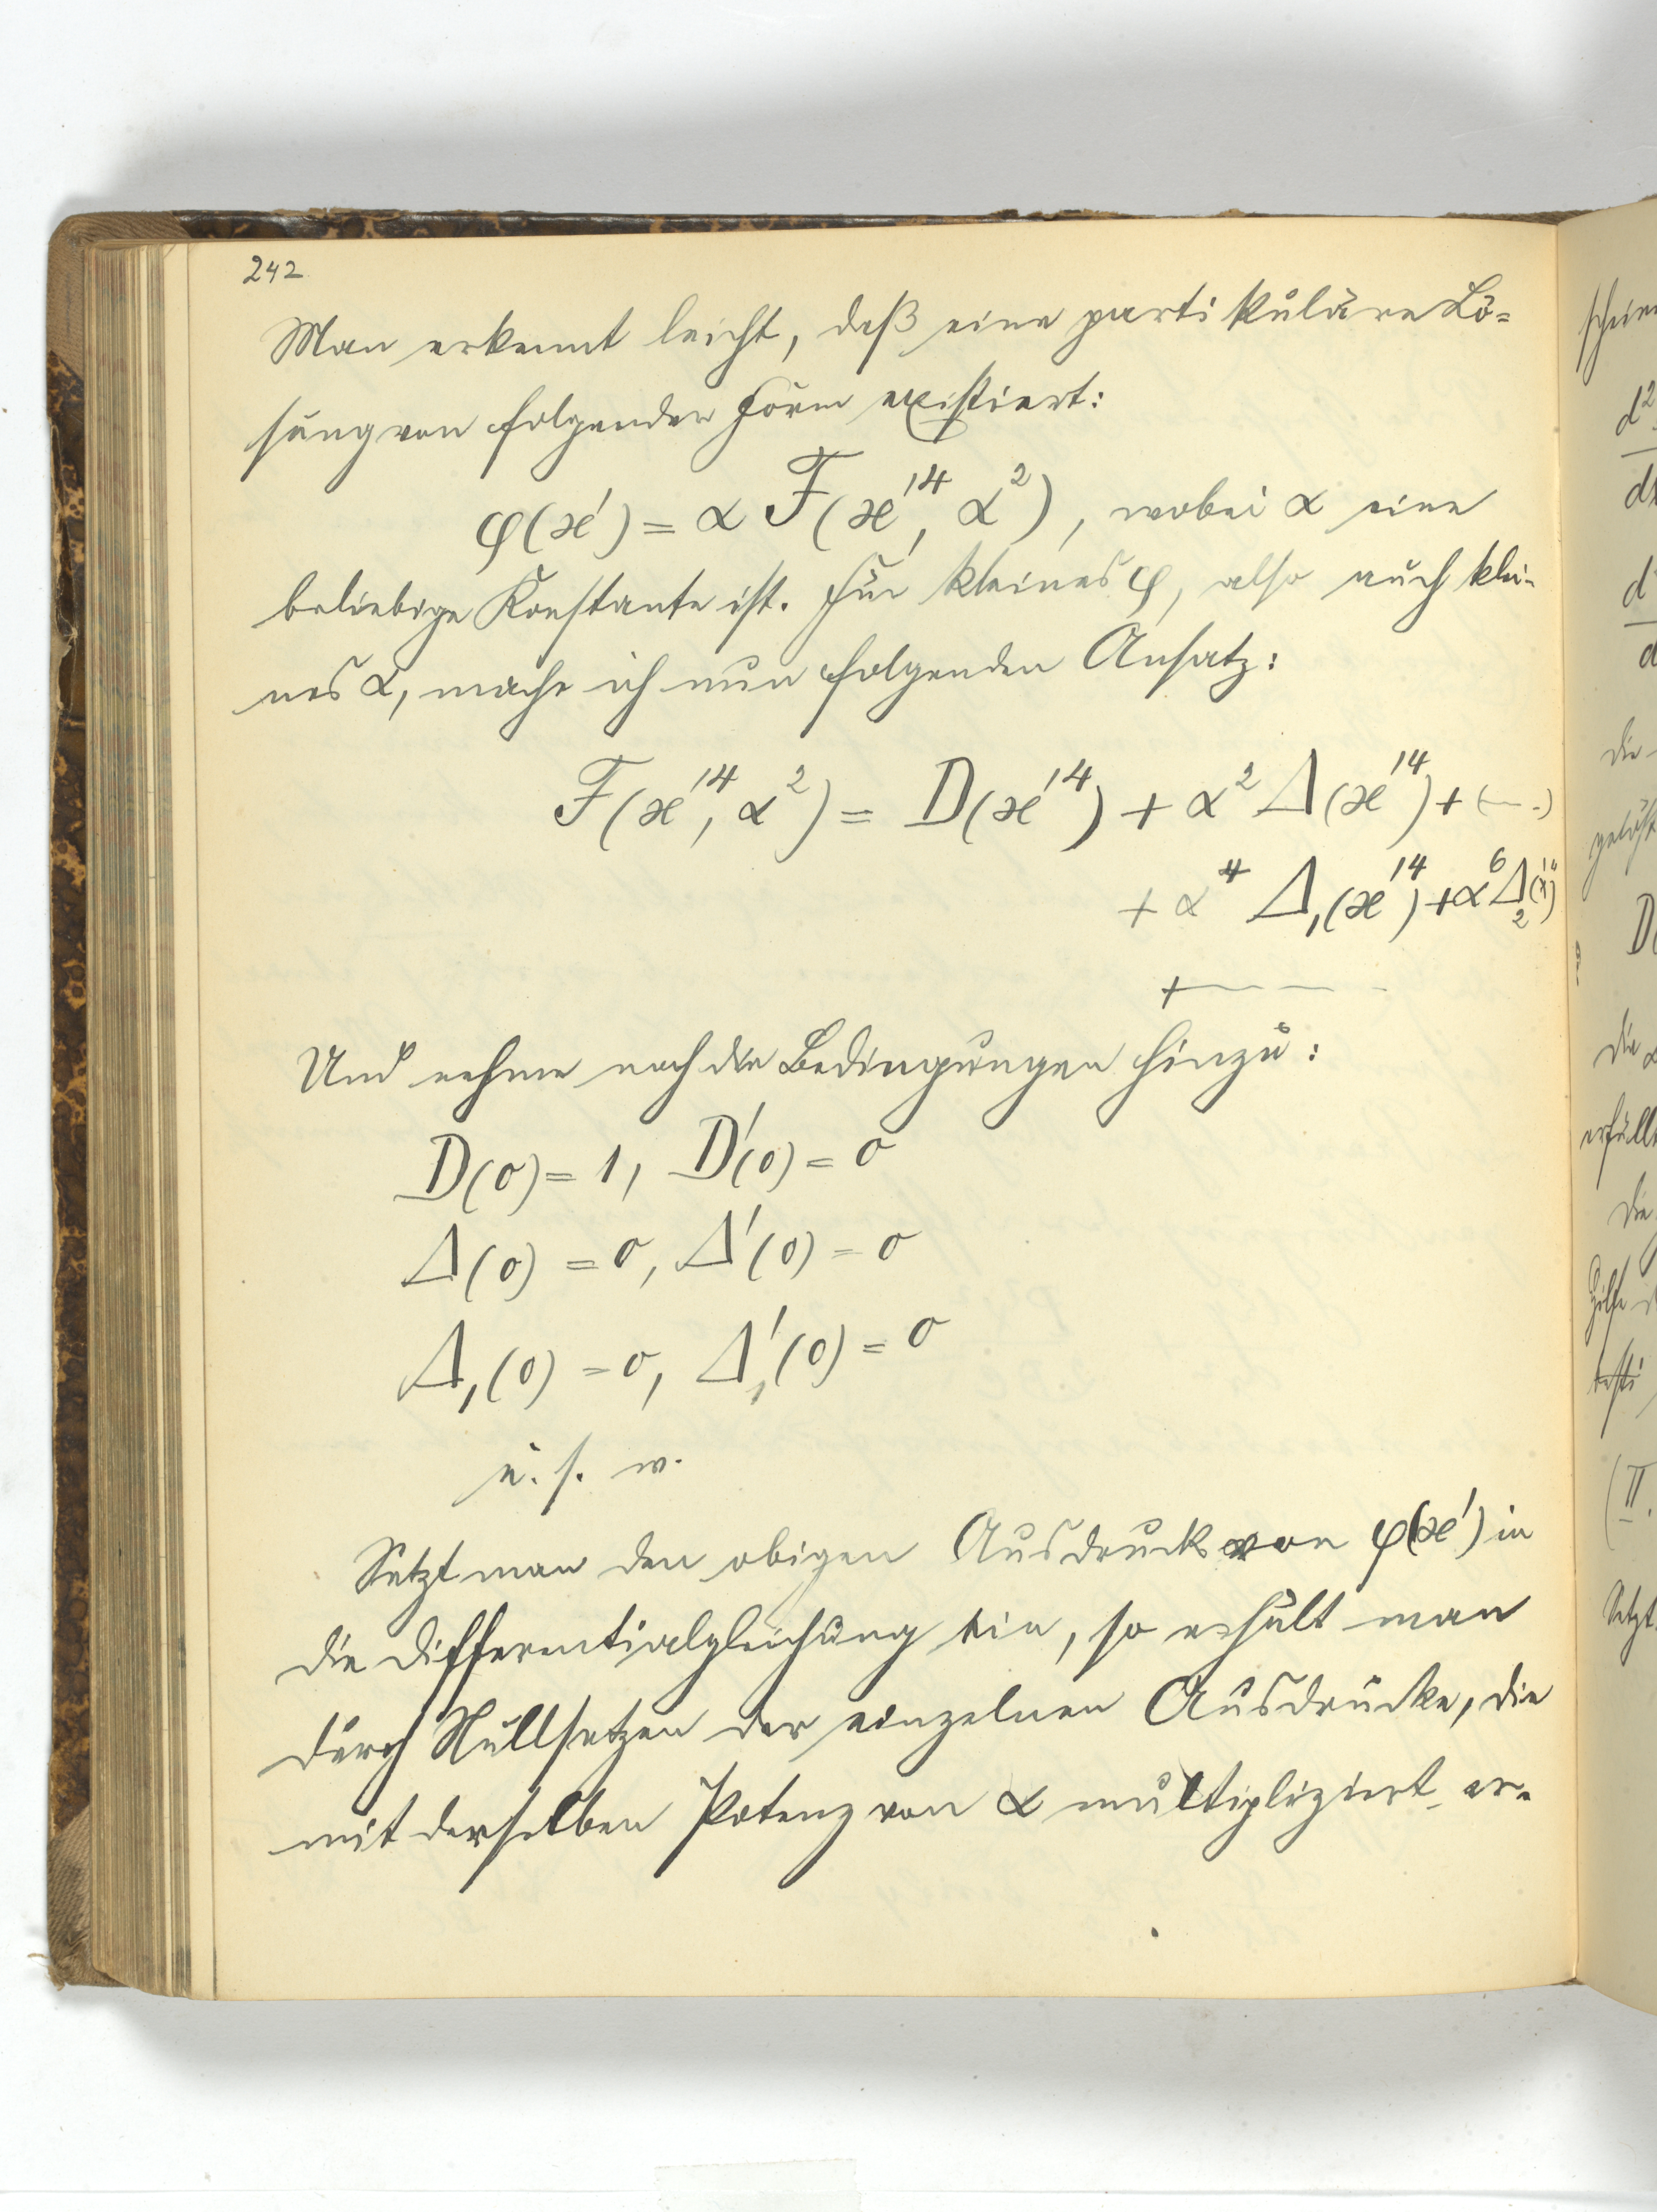 242
Man erkennt leicht, daß eine partikuläre Lö-
sung von folgender Form existiert:
φ(x') = α F(x'⁴, α²), wobei α eine
beliebige Konstante ist. Für kleines φ, also auch klei-
nes α, mache ich nun folgenden Ansatz:
F(x'⁴, α²) = D(x'⁴) + α² Δ(x'⁴) + (—·)
+ α⁴ Δ₁(x'⁴) + α⁶ Δ₂(x'⁴)
+ — — — -
Und nehme noch die Bedingungen hinzu:
D(0) = 1, D'(0) = 0
Δ(0) = 0, Δ'(0) = 0
Δ₁(0) = 0, Δ₁'(0) = 0
u. s. w.
Setzt man den obigen Ausdruck von φ(x') in
die Differentialgleichung ein, so erhält man
durch Nullsetzen der einzelnen Ausdrücke, die
mit derselben Potenz von α multipliziert er-
schein
d²
d
die
gelöst
D(
die
erfüllt
Die
Hilfe
(II.
Setzt